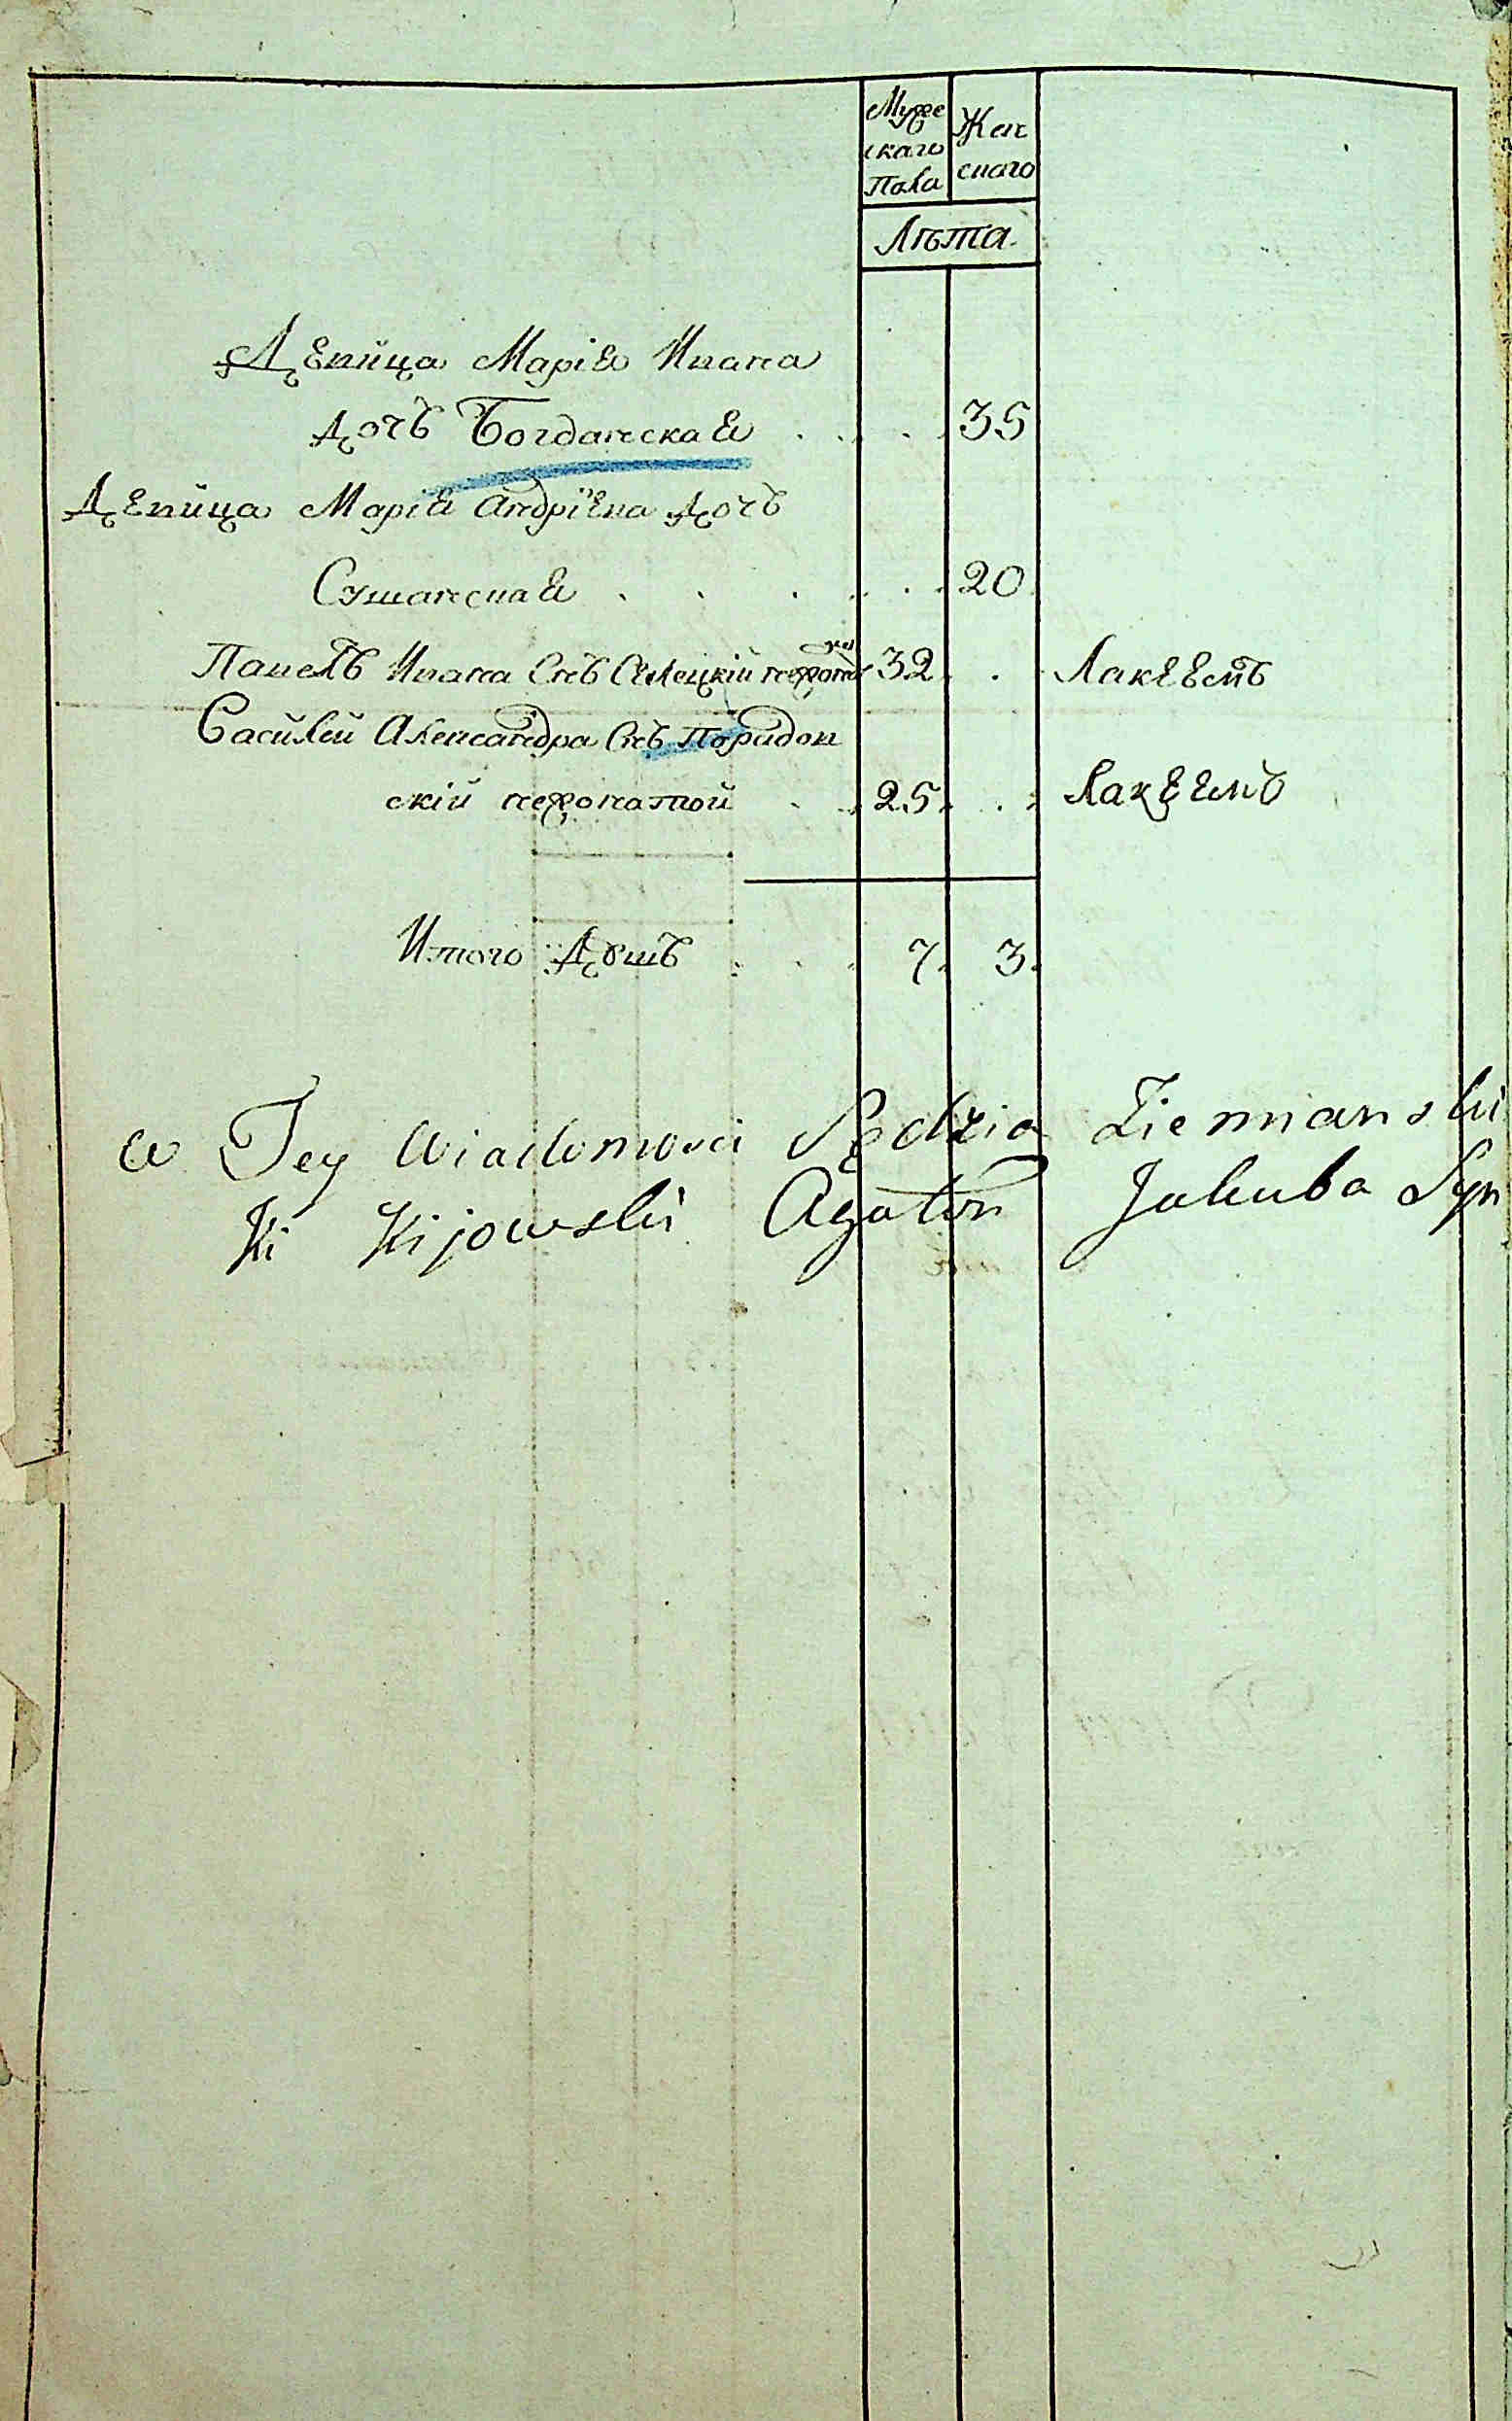 Мужескаго Пола
Женскаго
Лѣта
Девица Марія Ивана
дочь Богданская 35
Девица Марія Андріева дочь
Сушанская 20
Павелъ Ивана Снъ Селецкій 32 Лакеемъ
Василей Александра Снъ Поридов
скій нежонатой 25 Лакеемъ
Итого Душъ 7 3
w Tey Wiadomosci Sędzia Ziemianski
Ki Kijowski Agaton Jakuba Syn